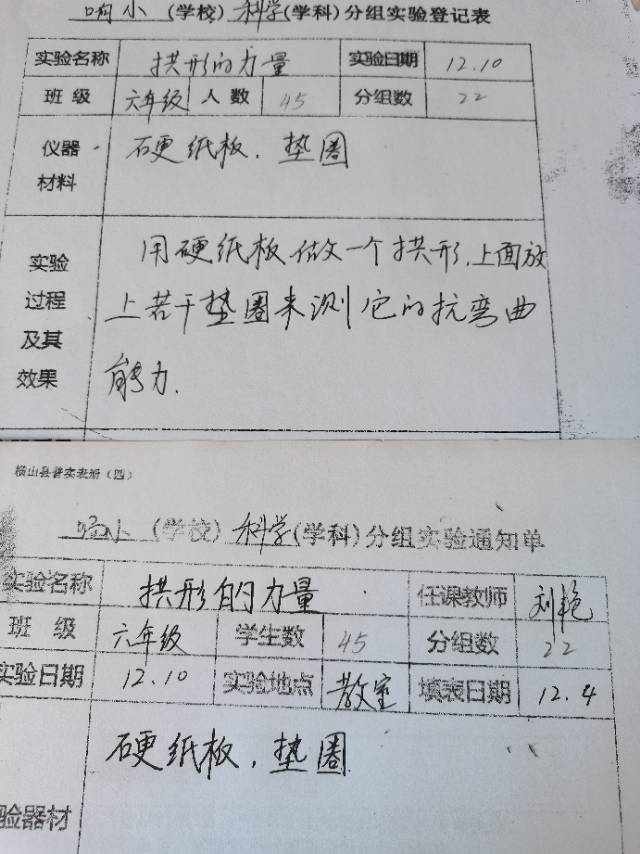 响小 (学校) 科学 (学科) 分组实验登记表
实验名称 拱形的力量 实验日期 12.10
班 级 六年级 人 数 45 分组数 22
仪器 硬纸板、垫圈
材料
实验 用硬纸板做一个拱形,上面放
过程 上若干垫圈来测它的抗弯曲
及其 能力.
效果
横山县普实表册(四)
响小 (学校) 科学 (学科) 分组实验通知单
实验名称 拱形的力量 任课教师 刘艳
班 级 六年级 学生数 45 分组数 22
实验日期 12.10 实验地点 教室 填表日期 12.4
硬纸板、垫圈
验器材